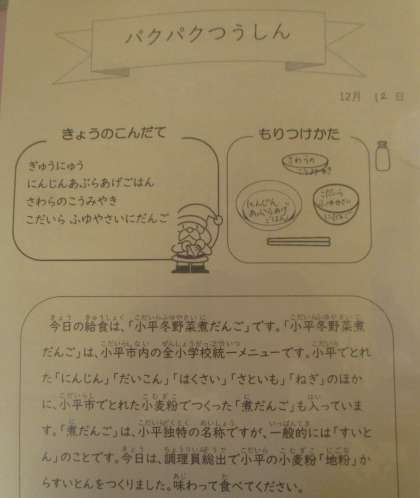 パクパクつうしん
12月 12日
きょうのこんだて
ぎゅうにゅう
にんじんあぶらあげごはん
さわらのこうみやき
こだいら ふゆやさいにだんご
もりつけかた
さわらの
こうみやき
にんじん
あぶらあげ
ごはん
こだいら
ふゆやさい
にだんご
今日の給食は、「小平冬野菜煮だんご」です。「小平冬野菜煮
だんご」は、小平市内の全小学校統一メニューです。小平でとれ
た「にんじん」「だいこん」「はくさい」「さといも」「ねぎ」のほか
に、小平市でとれた小麦粉でつくった「煮だんご」も入っていま
す。「煮だんご」は、小平独特の名称ですが、一般的には「すいと
ん」のことです。今日は、調理員総出で小平の小麦粉「地粉」か
らすいとんをつくりました。味わって食べてください。